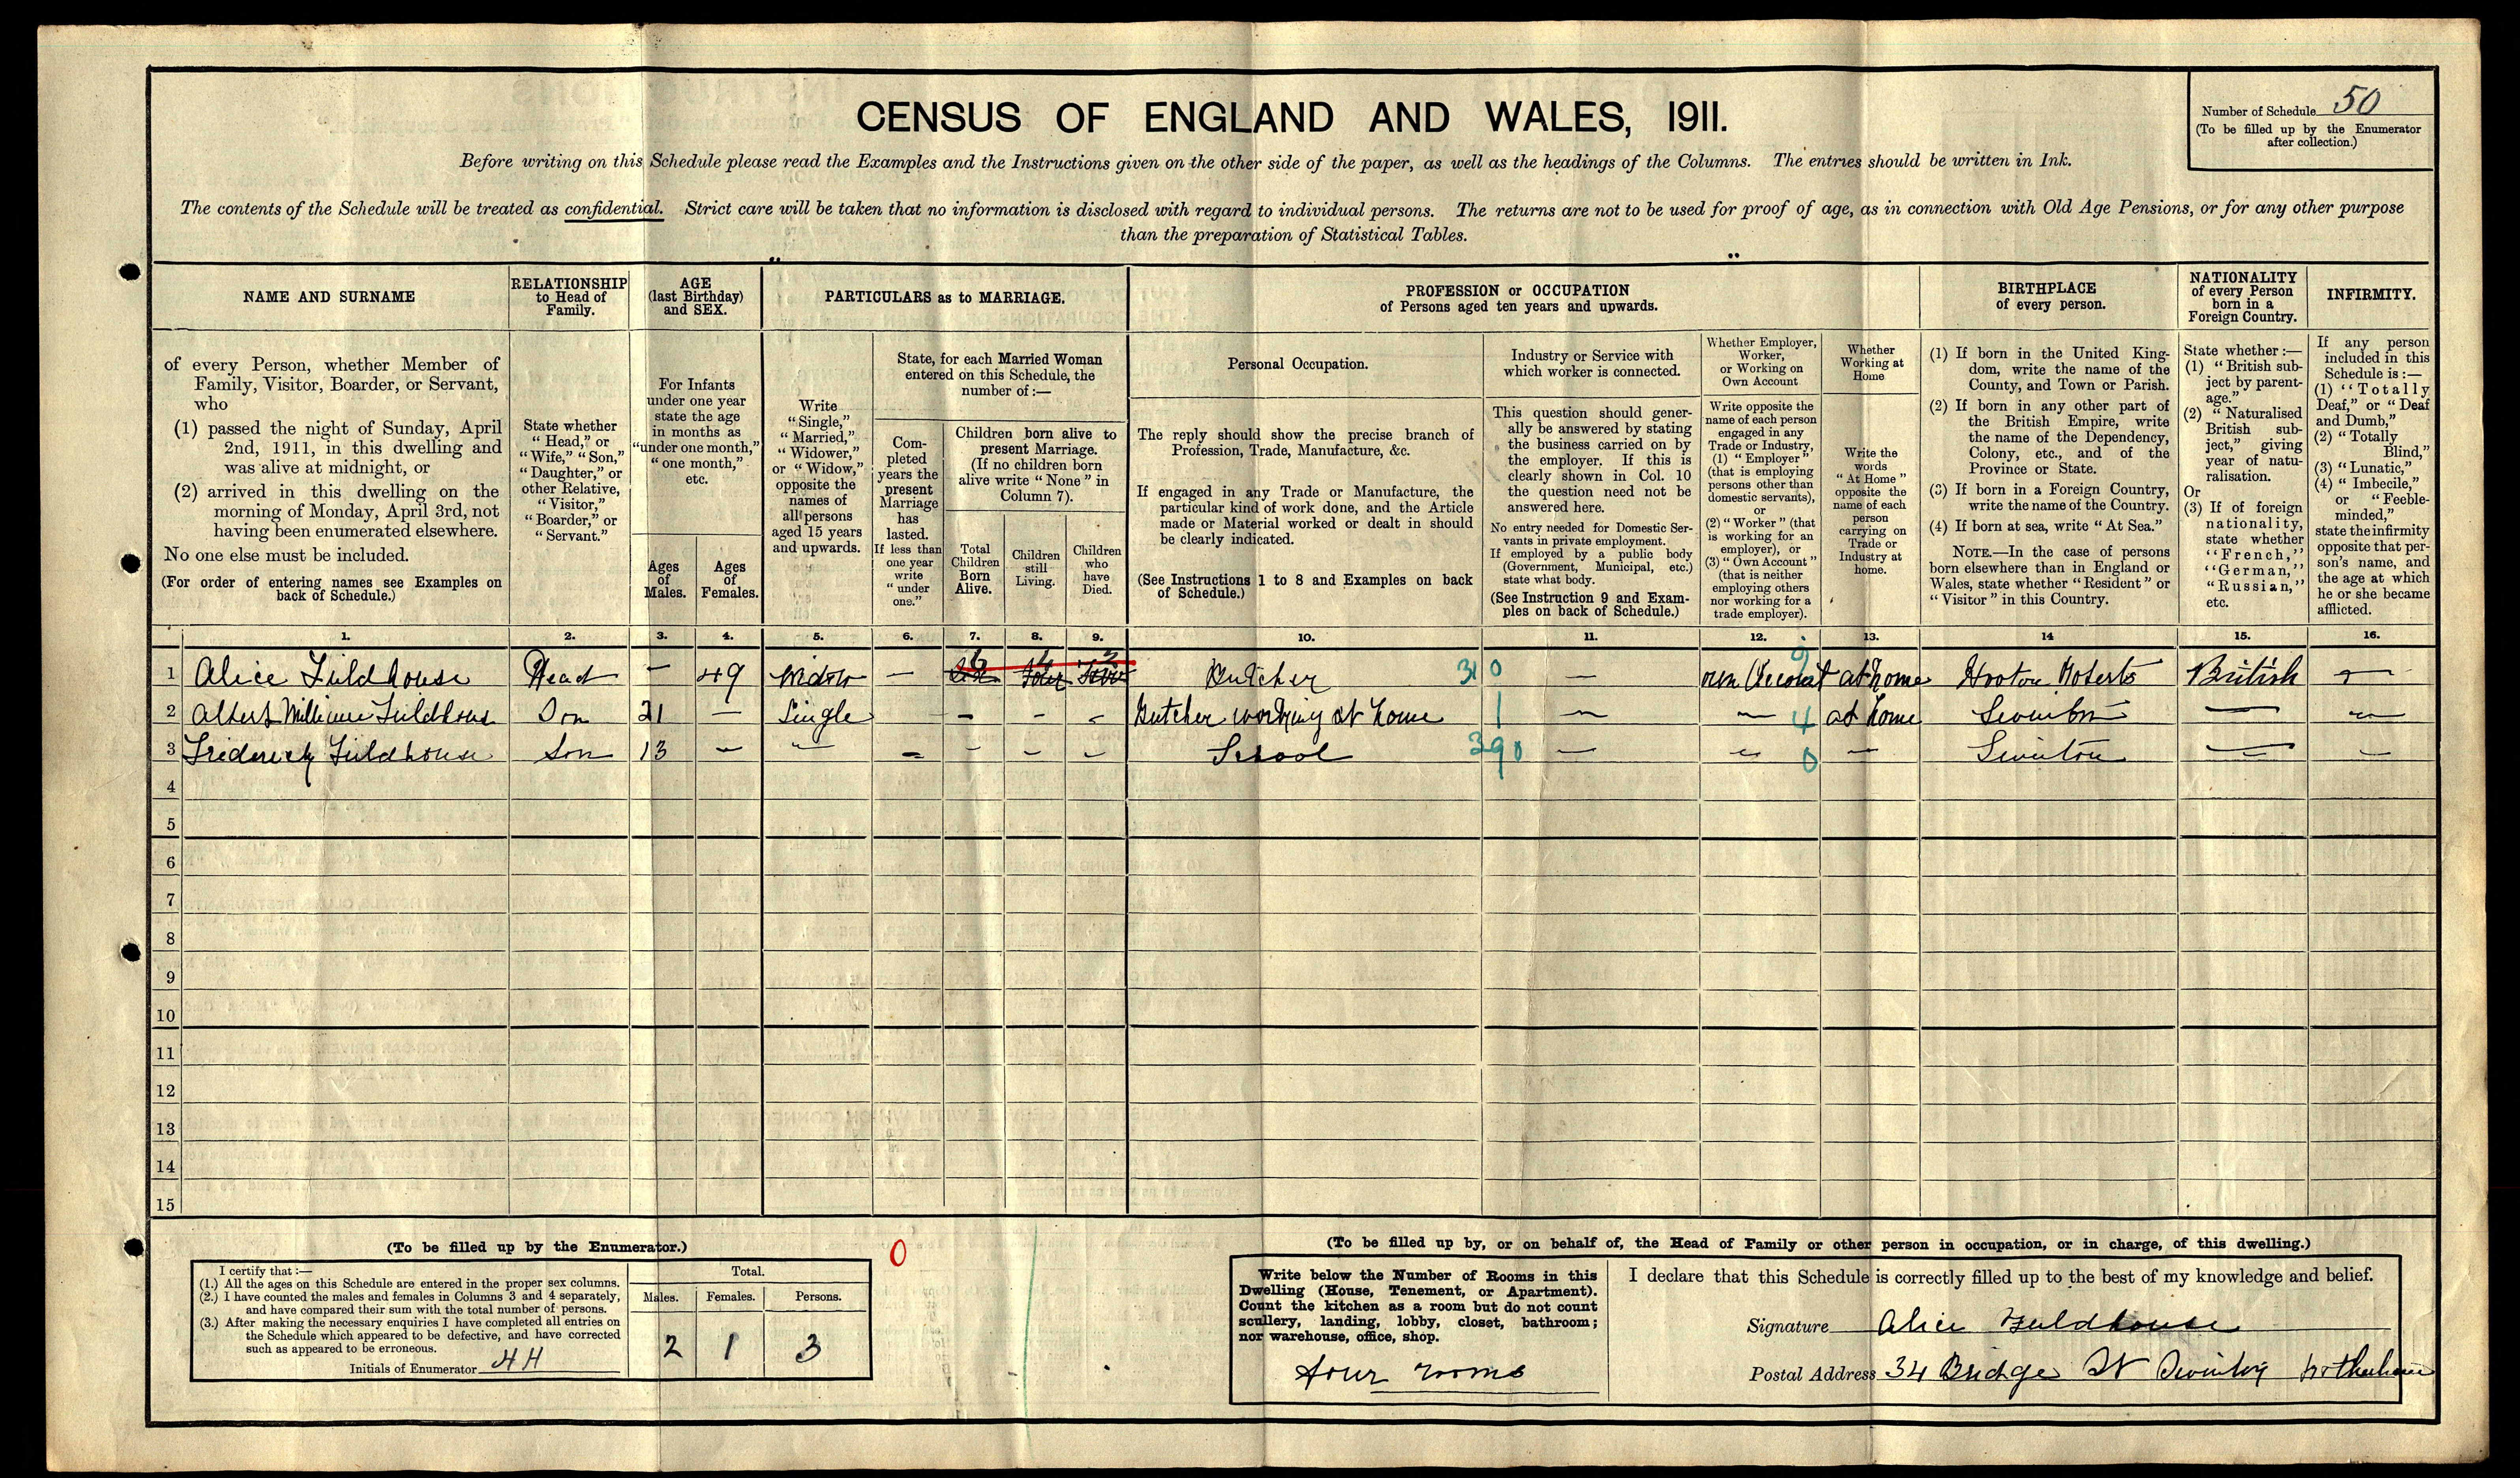 CENSUS OF ENGLAND AND WALES, 1911.
Number of Schedule 50
(To be filled up by the Enumerator
after collection.)
Before writing on this Schedule please read the Examples and the Instructions given on the other side of the paper, as well as the headings of the Columns. The entries should be written in Ink.
The contents of the Schedule will be treated as confidential. Strict care will be taken that no information is disclosed with regard to individual persons. The returns are not to be used for proof of age, as in connection with Old Age Pensions, or for any other purpose
than the preparation of Statistical Tables.
NAME AND SURNAME
of every Person, whether Member of
Family, Visitor, Boarder, or Servant,
who
(1) passed the night of Sunday, April
2nd, 1911, in this dwelling and
was alive at midnight, or
(2) arrived in this dwelling on the
morning of Monday, April 3rd, not
having been enumerated elsewhere.
No one else must be included.
(For order of entering names see Examples on
back of Schedule.)
RELATIONSHIP
to Head of
Family.
State whether
"Head," or
"Wife," "Son,"
"Daughter," or
other Relative,
"Visitor,"
"Boarder," or
"Servant."
AGE
(last Birthday)
and SEX.
For Infants
under one year
state the age
in months as
"under one month,"
"one month,"
etc.
Ages
of
Males.
Ages
of
Females.
PARTICULARS as to MARRIAGE.
Write
"Single,"
"Married,"
"Widower,"
or "Widow,"
opposite the
names of
all persons
aged 15 years
and upwards.
State, for each Married Woman
entered on this Schedule, the
number of:—
Com-
pleted
years the
present
Marriage
has
lasted.
If less than
one year
write
"under
one."
Children born alive to
present Marriage.
(If no children born
alive write "None" in
Column 7).
Total
Children
Born
Alive.
Children
still
Living.
Children
who
have
Died.
PROFESSION or OCCUPATION
of Persons aged ten years and upwards.
Personal Occupation.
The reply should show the precise branch of
Profession, Trade, Manufacture, &c.
If engaged in any Trade or Manufacture, the
particular kind of work done, and the Article
made or Material worked or dealt in should
be clearly indicated.
(See Instructions 1 to 8 and Examples on back
of Schedule.)
Industry or Service with
which worker is connected.
This question should gener-
ally be answered by stating
the business carried on by
the employer. If this is
clearly shown in Col. 10
the question need not be
answered here.
No entry needed for Domestic Ser-
vants in private employment.
If employed by a public body
(Government, Municipal, etc.)
state what body.
(See Instruction 9 and Exam-
ples on back of Schedule.)
Whether Employer,
Worker,
or Working on
Own Account
Write opposite the
name of each person
engaged in any
Trade or Industry,
(1) "Employer"
(that is employing
persons other than
domestic servants),
or
(2) "Worker" (that
is working for an
employer), or
(3) "Own Account"
(that is neither
employing others
nor working for a
trade employer).
Whether
Working at
Home
Write the
words
"At Home"
opposite the
name of each
person
carrying on
Trade or
Industry at
home.
BIRTHPLACE
of every person.
(1) If born in the United King-
dom, write the name of the
County, and Town or Parish.
(2) If born in any other part of
the British Empire, write
the name of the Dependency,
Colony, etc., and of the
Province or State.
(3) If born in a Foreign Country,
write the name of the Country.
(4) If born at sea, write "At Sea."
NOTE.—In the case of persons
born elsewhere than in England or
Wales, state whether "Resident" or
"Visitor" in this Country.
NATIONALITY
of every Person
born in a
Foreign Country.
State whether:—
(1) "British sub-
ject by parent-
age."
(2) "Naturalised
British sub-
ject," giving
year of natu-
ralisation.
Or
(3) If of foreign
nationality,
state whether
"French,"
"German,"
"Russian,"
etc.
INFIRMITY.
If any person
included in this
Schedule is:—
(1) "Totally
Deaf," or "Deaf
and Dumb,"
(2) "Totally
Blind,"
(3) "Lunatic,"
(4) "Imbecile,"
or "Feeble-
minded,"
state the infirmity
opposite that per-
son's name, and
the age at which
he or she became
afflicted.
1. 2. 3. 4. 5. 6. 7. 8. 9. 10. 11. 12. 13. 14 15. 16.
1 Alice Fieldhouse Head — 49 Widow — 6 4 2 Butcher 31 0 — own Account 9 at home Hooton Roberts British —
2 Albert William Fieldhouse Son 21 — Single - - - Butcher working at home 1 — — 4 at home Swinton — —
3 Frederick Fieldhouse Son 13 — — - - - - School 390 — — 0 — Swinton — —
4
5
6
7
8
9
10
11
12
13
14
15
(To be filled up by the Enumerator.)
I certify that:—
(1.) All the ages on this Schedule are entered in the proper sex columns.
(2.) I have counted the males and females in Columns 3 and 4 separately,
and have compared their sum with the total number of persons.
(3.) After making the necessary enquiries I have completed all entries on
the Schedule which appeared to be defective, and have corrected
such as appeared to be erroneous.
Initials of Enumerator HH
Total.
Males. Females. Persons.
2 1 3
0
(To be filled up by, or on behalf of, the Head of Family or other person in occupation, or in charge, of this dwelling.)
Write below the Number of Rooms in this
Dwelling (House, Tenement, or Apartment).
Count the kitchen as a room but do not count
scullery, landing, lobby, closet, bathroom;
nor warehouse, office, shop.
four rooms
I declare that this Schedule is correctly filled up to the best of my knowledge and belief.
Signature Alice Fieldhouse
Postal Address 34 Bridge St Swinton Rotherham